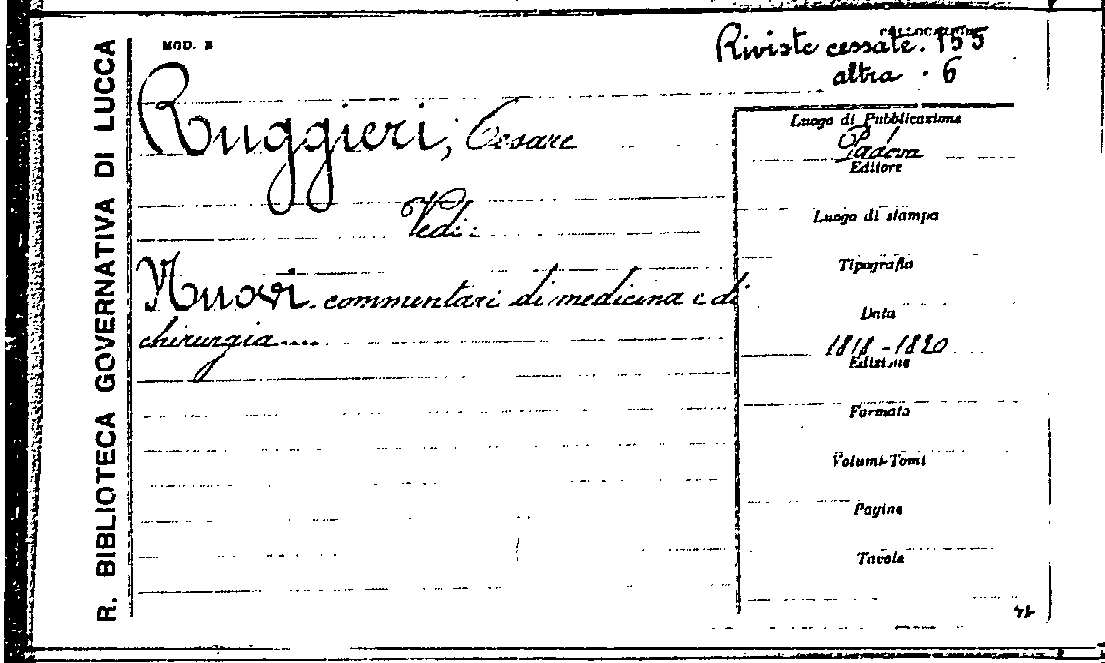 R. BIBLIOTECA GOVERNATIVA DI LUCCA
MOD. 2
COLLOCAZIONE
Riviste cessate. 155
altra . 6
Ruggieri, Cesare
Vedi:
Nuovi commentari di medicina e di
chirurgia....
Luogo di Pubblicazione
Padova
Editore
Luogo di stampa
Tipografia
Data
1818-1820
Edizione
Formato
Volumi-Tomi
Pagine
Tavole